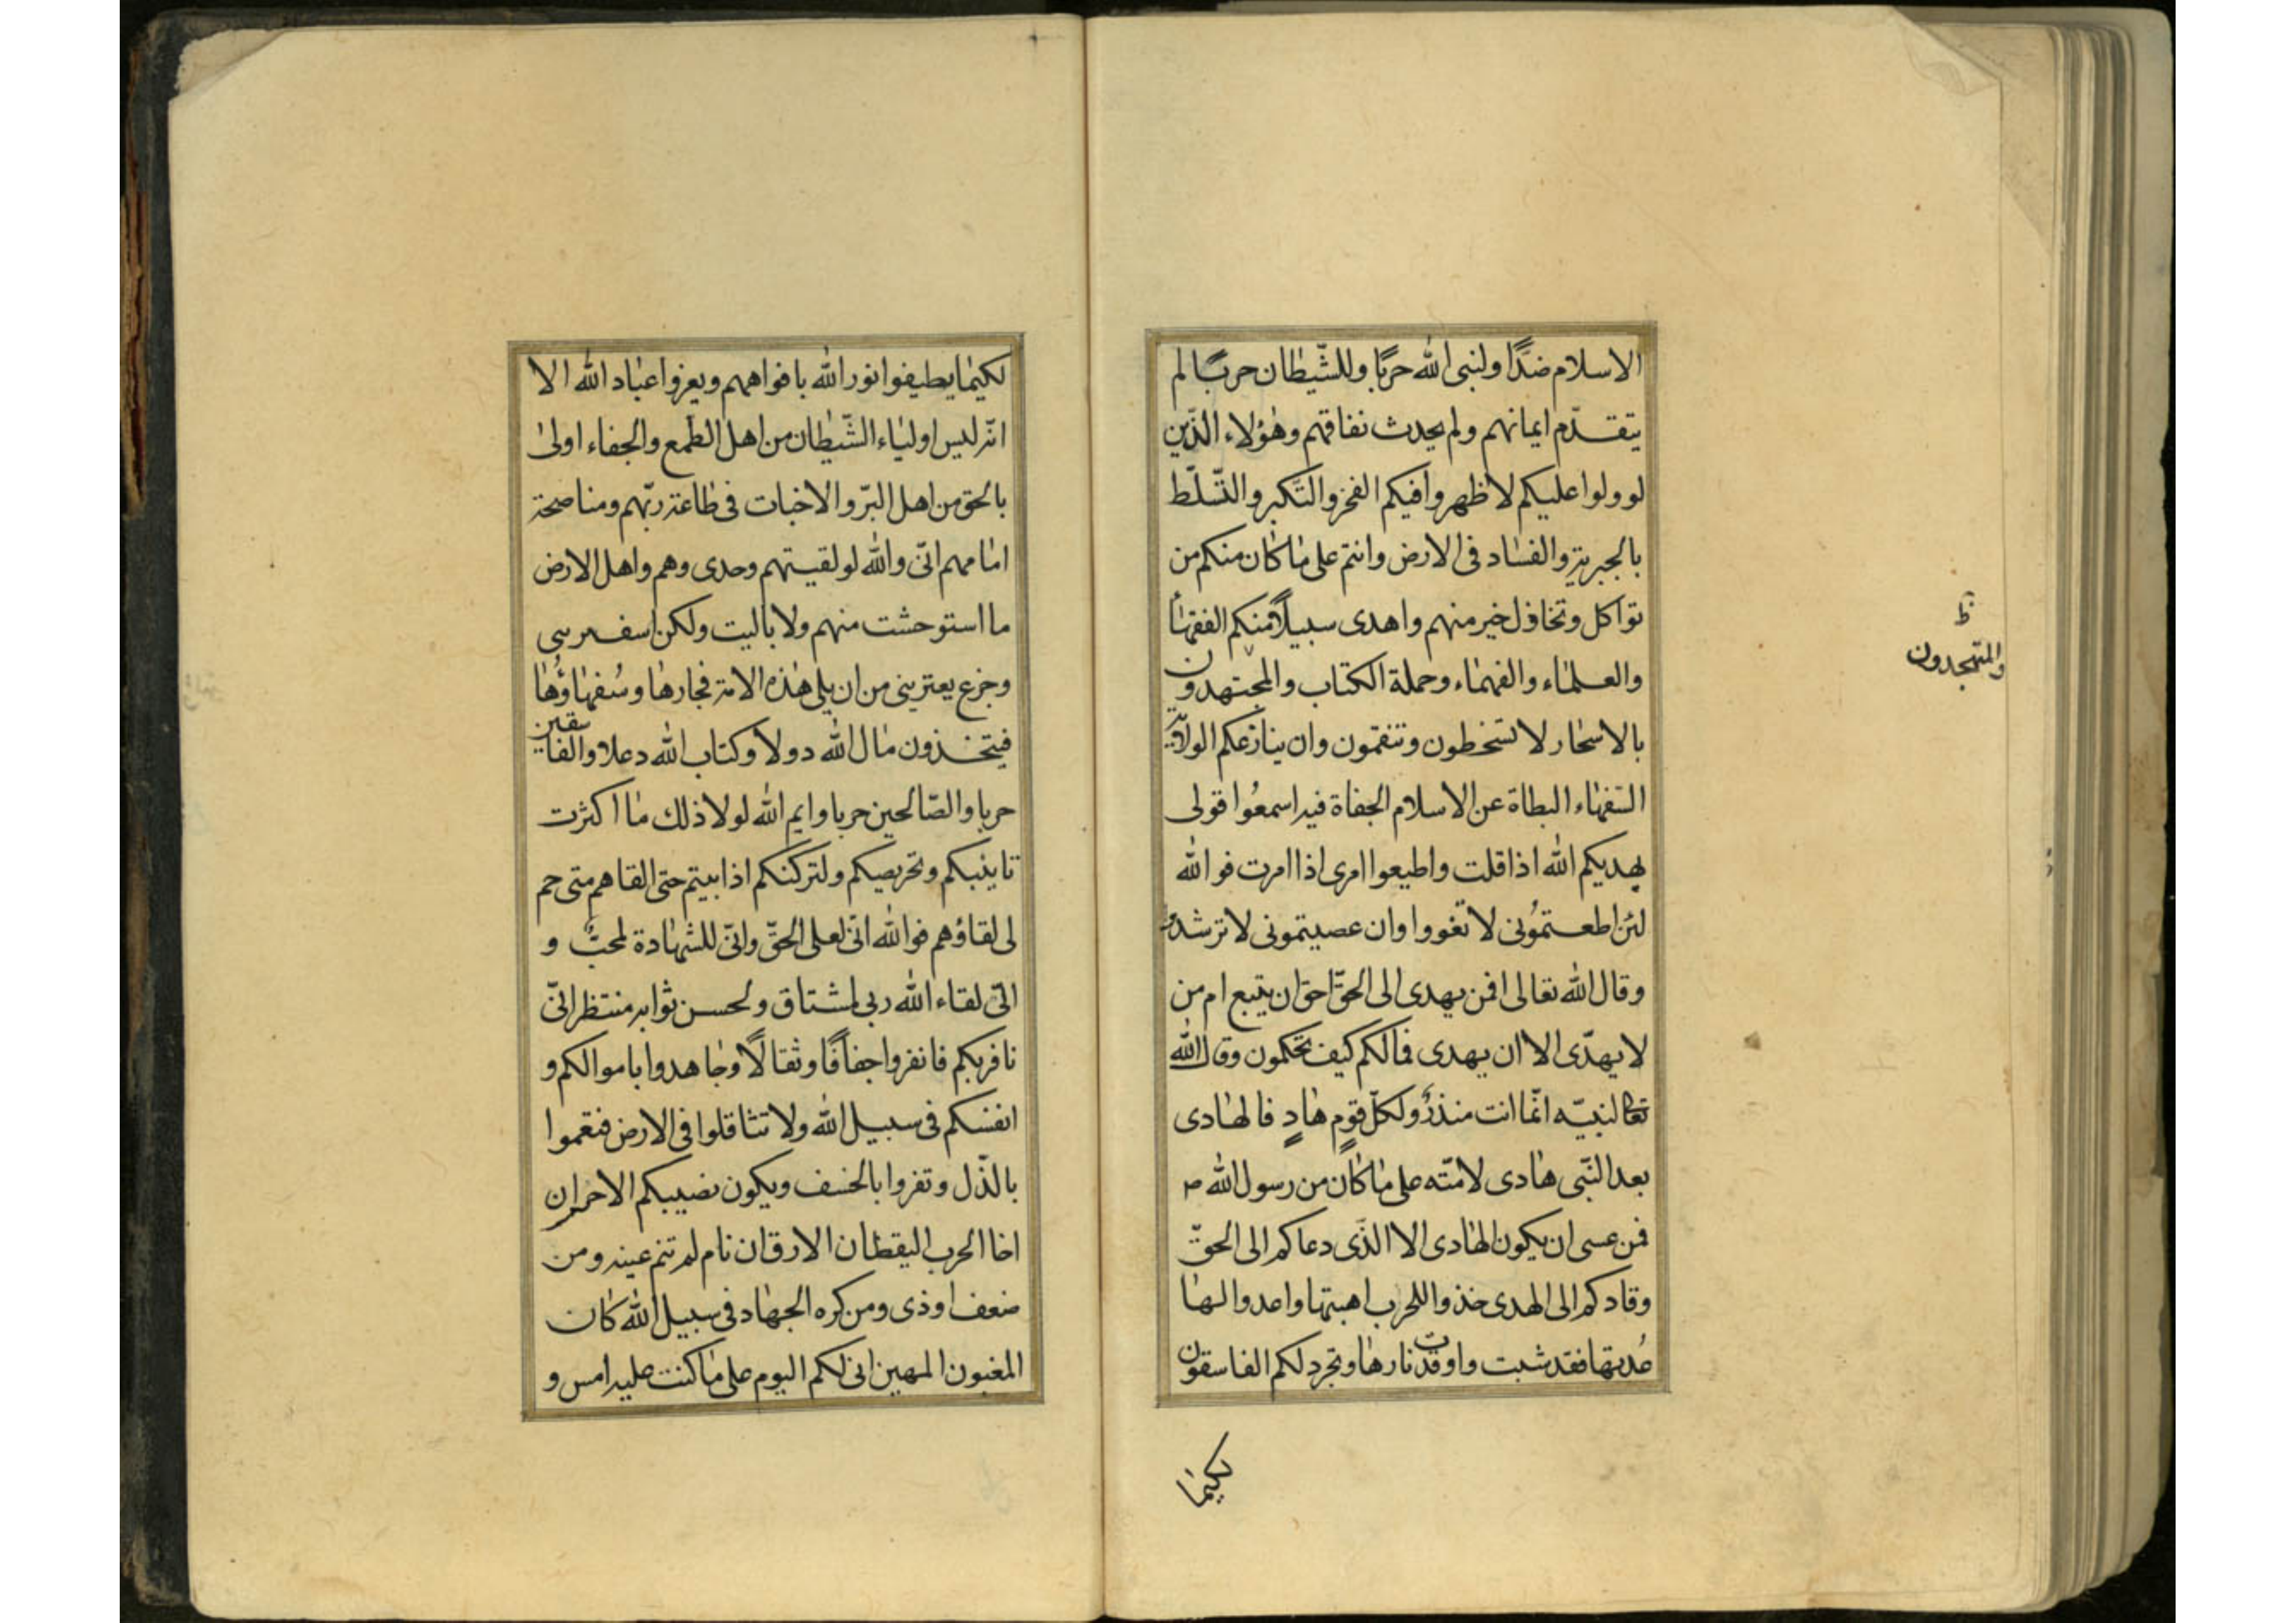 الاسلام ضدًّا ولنبى الله حربًا وللشّيطان حربًا لم
يتقدّم ايمانهم ولم يحدث نفاقهم وهؤلاء الذّين
لو ولوا عليكم لاظهروا فيكم الفخر والتّكبر والتّسلّط
بالجبرية والفساد فى الارض وانتم على ما كان منكم من
تواكل وتخاذل خير منهم واهدى سبيلاً منكم الفقهاء
والعلماء والفهماء وحملة الكتاب والمجتهدون
ظ
والمتهجدون
بالاسحار لا تسخطون وتنقمون وان ينازعكم الولاية
السّفهاء البطاة عن الاسلام الجفاة فيه اسمعوا قولى
يهديكم الله اذا قلت واطيعوا امرى اذا امرت فوالله
لئن اطعتمونى لا تغووا وان عصيتمونى لا ترشدوا
وقال الله تعالى افمن يهدى الى الحقّ احق ان يتبع ام من
لا يهدّى الا ان يهدى فمالكم كيف تحكمون وقال الله
تعالى لنبيّه انّما انت منذرٌ ولكلّ قومٍ هادٍ فالهادى
بعد النّبى هادى لامّته على ما كان من رسول الله ص
فمن عسى ان يكون الهادى الا الذّى دعاكم الى الحقّ
وقادكم الى الهدى خذوا للحرب اهبتها واعدوا لها
عُدتها فقد شبت واوقدت نارها وتجرد لكم الفاسقون
لكيما
لكيما يطيفوا نور الله بافواههم ويعزوا عباد الله الا
انّه ليس اولياء الشّيطان من اهل الطّمع والجفاء اولى
بالحق من اهل البرّ والاخبات فى طاعة ربّهم ومناصحة
امامهم انّى والله لو لقيتهم وحدى وهم واهل الارض
ما استوحشت منهم ولا باليت ولكن اسف
وجزع يعترينى من ان يلى هذه الامة فجارها وسُفهاؤُها
فيتخذون مال الله دولا وكتاب الله دغلا والفاسقين
حربا والصّالحين حربا وايم الله لولا ذلك ما اكثرت
تانيبكم وتحريصكم ولتركتكم اذا ابيتم حتى القاهم متى حم
لى لقاؤهم فوالله انّى لعلى الحقّ وانّى للشهادة لمحبٌّ و
الى لقاء الله ربى لمشتاق ولحسن ثوابه منتظر انّى
نافر بكم فانفروا خفافًا وثقالاً وجاهدوا باموالكم و
انفسكم فى سبيل الله ولا تثاقلوا فى الارض فتغموا
بالذّل وتقروا بالخسف ويكون نصيبكم الاخسر ان
اخا الحرب اليقظان الارق ان نام لم تنم عينه ومن
ضعف اوذى ومن كره الجهاد فى سبيل الله كان
المغبون المهين انى لكم اليوم على ما كنت عليه امس و